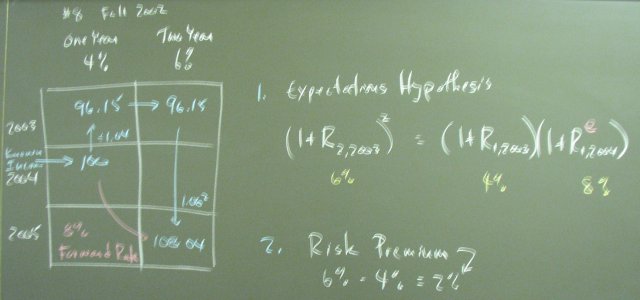 #8 Fall 2002
One Year Two Year
4% 6%
2003 96.15 → 96.15
÷1.04
Known
2004 → 100
1.06²
2005 8% 108.04
Forward Rate
1. Expectations Hypothesis
(1+R2,2003)² = (1+R1,2003)(1+Rᵉ1,2004)
6% 4% 8%
2. Risk Premium
6% - 4% = 2%